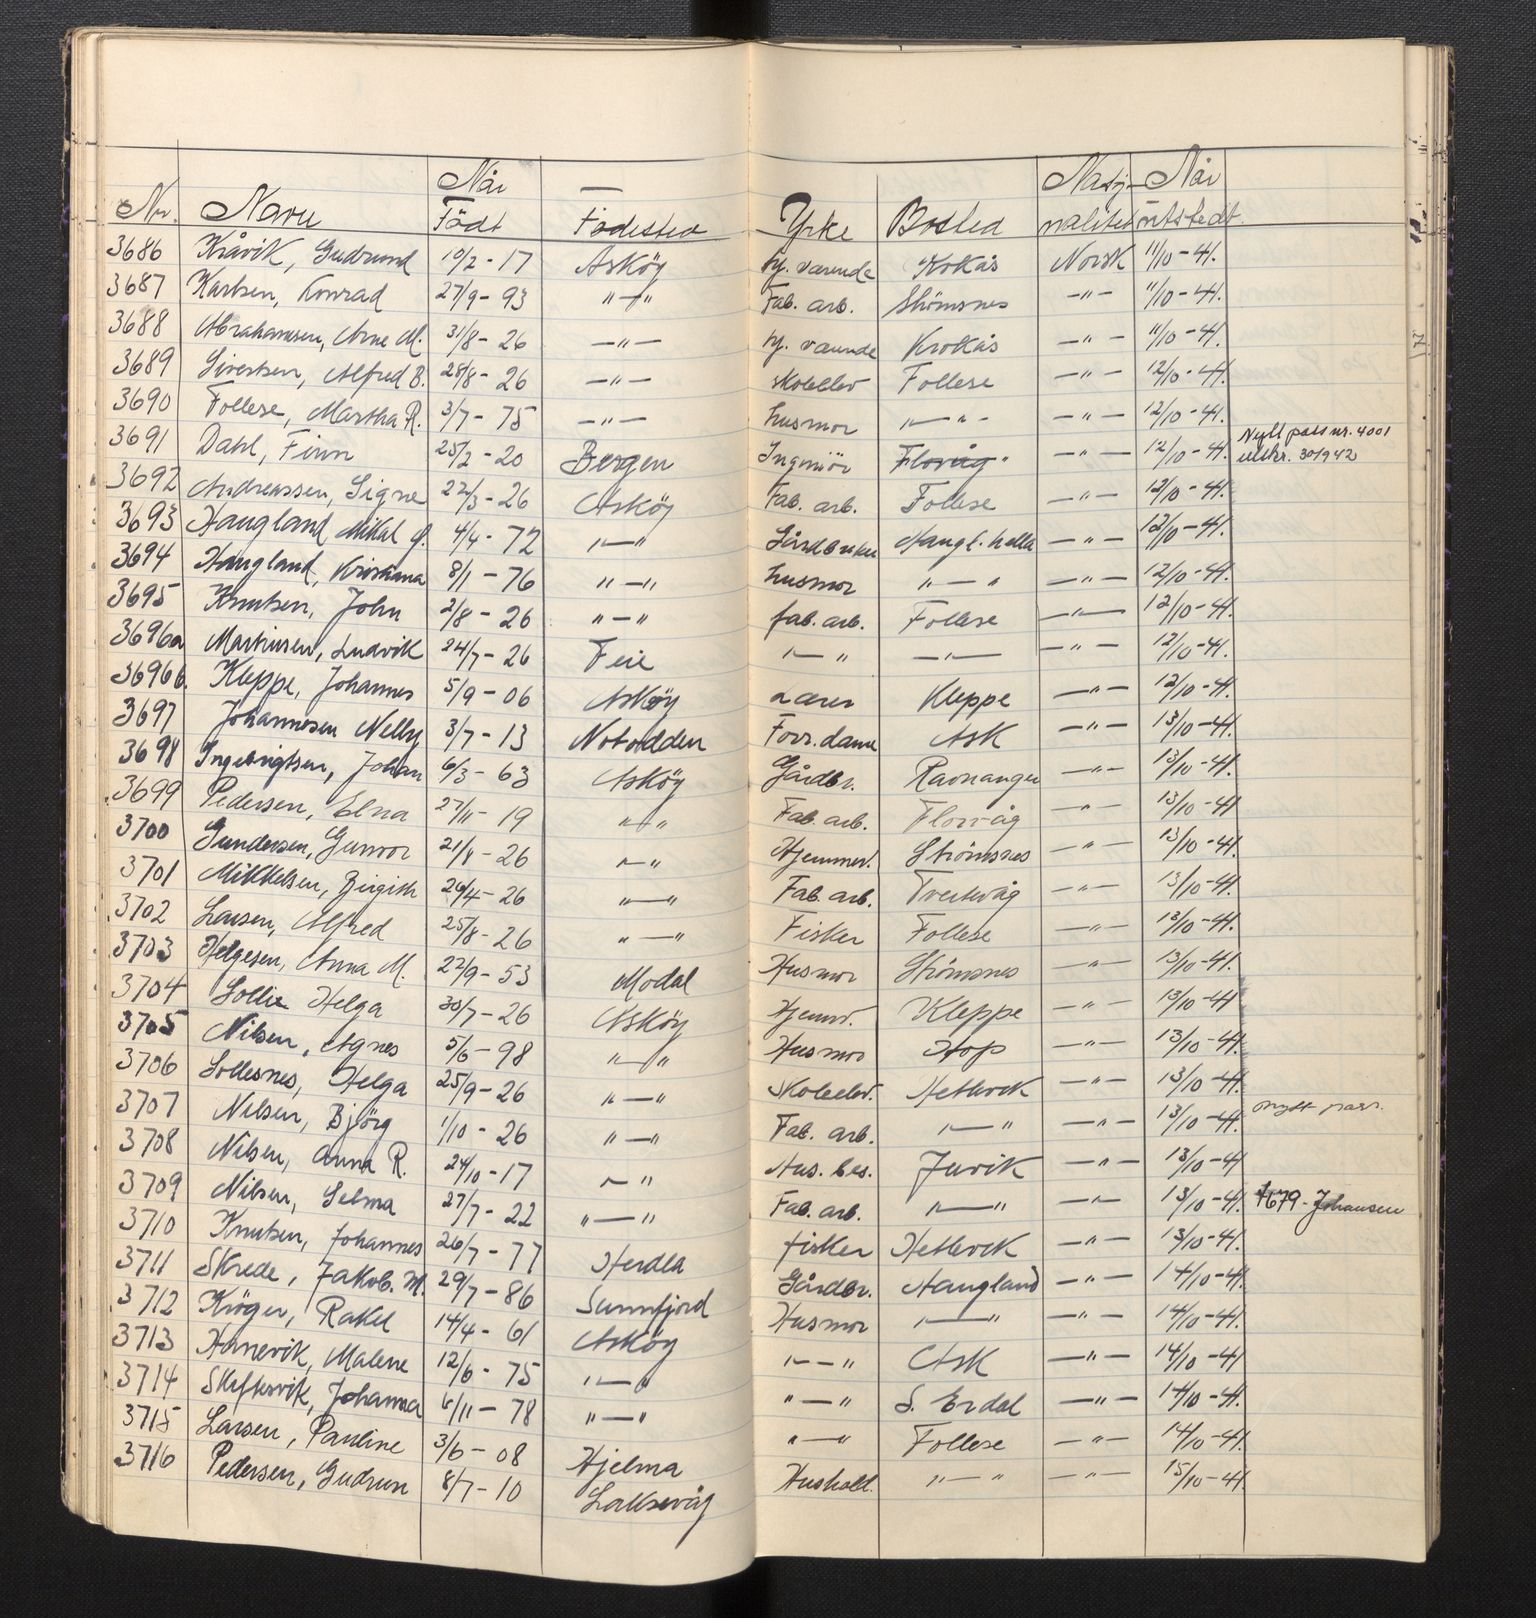 Nr. Navn Når Født Fødested Yrke Bosted Nasjonalitet Når utstedt.
3686 Kråvik, Gudrund 10/2-17 Asköy hj. værende Kokås Norsk 11/10-41.
3687 Karlsen, Konrad 27/9-93 "—" Fab. arb. Strömsnes —"— 11/10-41.
3688 Abrahamsen, Arne M. 31/8-26 —"— hj. værende Krokås —"— 11/10-41.
3689 Sivertsen, Alfred B. 28/8-26 —"— skoleelev Follese —"— 12/10-41.
3690 Follese, Martha R. 3/7-75 —"— husmor "—"- —"— 12/10-41.
3691 Dahl, Finn 25/2-20 Bergen Ingeniör Florvåg —"— 12/10-41. Nytt pass nr. 4001
utskr. 301942
3692 Andreassen, Signe 22/3-26 Asköy Fab. arb. Follese —"— 12/10-41.
3693 Haugland Mikal J. 4/4-72 "—" Gårdbruker Haugl. hella —"— 12/10-41.
3694 Haugland, Kristiana 8/1-76 "—" husmor "—" —"— 12/10-41.
3695 Knutsen, John 2/8-26 "—" fab. arb. Follese —"— 12/10-41.
3696a Martinsen, Ludvik 24/7-26 Feie "—" —"— —"— 12/10-41.
3696b. Kleppe, Johannes 5/9-06 Asköy Lærer Kleppe —"— 12/10-41.
3697 Johannesen Nelly 3/7-13 Notodden Forr. dame Ask —"— 13/10-41.
3698 Ingebrigtsen, Johan 6/3-63 Asköy Gårdbr. Ravnanger —"— 13/10-41.
3699 Pedersen, Elna 27/11-19 "—" Fab. arb. Florvåg —"— 13/10-41
3700 Gundersen, Gunvor 21/8-26 "—" Hjemmev. Strömsnes —"— 13/10-41.
3701 Mikkelsen, Birgith 26/4-26 "—" Fab. arb. Tveitevåg —"— 13/10-41.
3702 Larsen, Alfred 25/8-26 "—" Fisker Follese —"— 13/10-41.
3703 Helgesen, Anna M. 22/9-53 Modal Husmor Strömsnes —"— 13/10-41.
3704 Sollie Helga 30/7-26 Asköy Hjemv. Kleppe —"— 13/10-41
3705 Nilsen, Agnes 5/6-98 "—" Husmor Hop —"— 13/10-41.
3706 Sollesnes, Helga 25/9-26 "—" Skoleelev. Hetlevik —"— 13/10-41.
3707 Nilsen, Björg 1/10-26 "—" Fab. arb. "—" —"— 13/10-41. nytt pass.
3708 Nilsen, Anna R. 24/10-17 "—" Hus. bes. Juvik —"— 13/10-41
3709 Nilsen, Selma 27/7-22 "—" Fab. arb. "—" —"— 13/10-41. 4679-Johansen
3710 Knutsen, Johannes 26/7-77 Herdla fisker Hetlevik —"— 13/10-41.
3711 Skrede, Jakob. M. 29/7-86 Sunnfjord Gårdbr. Haugland —"— 14/10-41.
3712 Kröger, Rakel 14/4-61 Asköy Husmor "—" —"— 14/10-41.
3713 Hanevik, Malene 12/6-75 "—" "—" Ask —"— 14/10-41
3714 Skiftesvik, Johanna 6/11-78 "—" "—" S. Erdal —"— 14/10-41.
3715 Larsen, Pauline 3/6-08 Hjelma "—" Follese —"— 14/10-41.
3716 Pedersen, Gudrun 8/7-10 Laksevåg Hushold. "—" —"— 15/10-41.